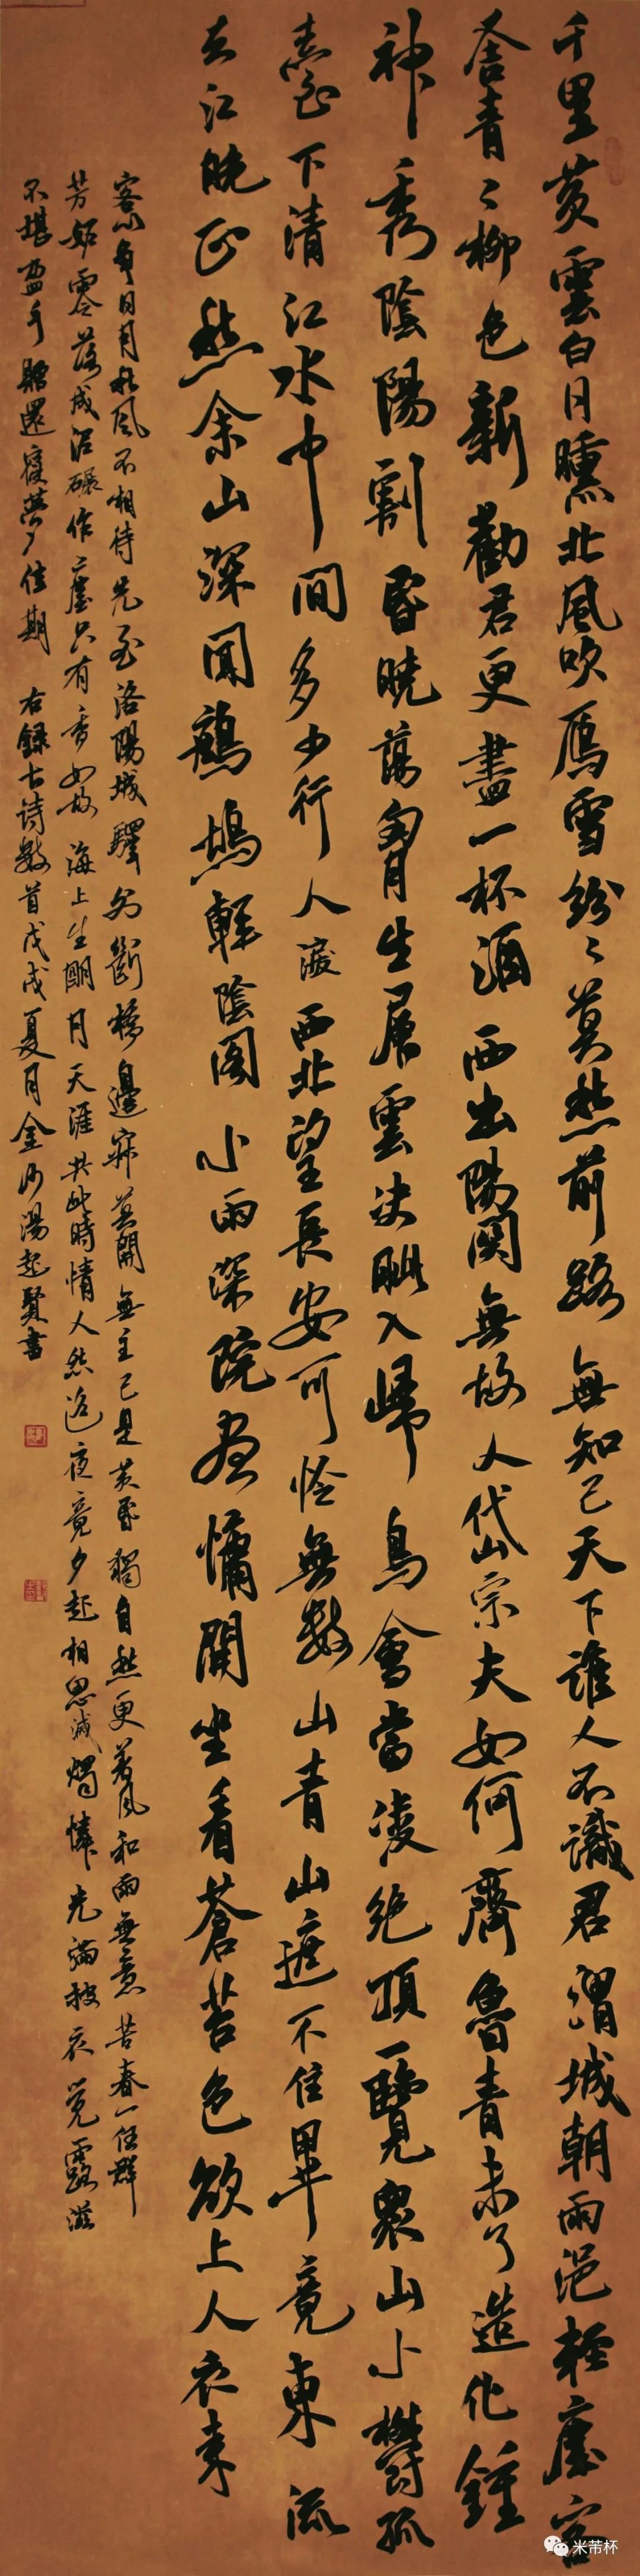 千里黄雲白日曛北風吹雁雪紛〻莫愁前路無知己天下誰人不識君渭城朝雨浥輕塵客
舍青〻柳色新勸君更盡一杯酒西出陽關無故人岱宗夫如何齊魯青未了造化鍾
神秀陰陽割昏曉蕩胷生層雲決眦入歸鳥會當凌絕頂一覽眾山小鬱孤
臺下清江水中間多少行人淚西北望長安可憐無數山青山遮不住畢竟東流
去江晚正愁余山深聞鷓鴣輕陰閣小雨深院晝慵開坐看蒼苔色欲上人衣來
客心爭日月秋風不相待先至洛陽城驛外斷橋邊寂寞開無主已是黄昏獨自愁更著風和雨無意苦春一任群
芳妬零落成泥碾作塵只有香如故海上生明月天涯共此時情人怨遙夜竟夕起相思滅燭憐光滿披衣覺露滋
不堪盈手贈還寢夢佳期 右錄古詩數首戊戌夏月金沙湯起賢書
米芾杯